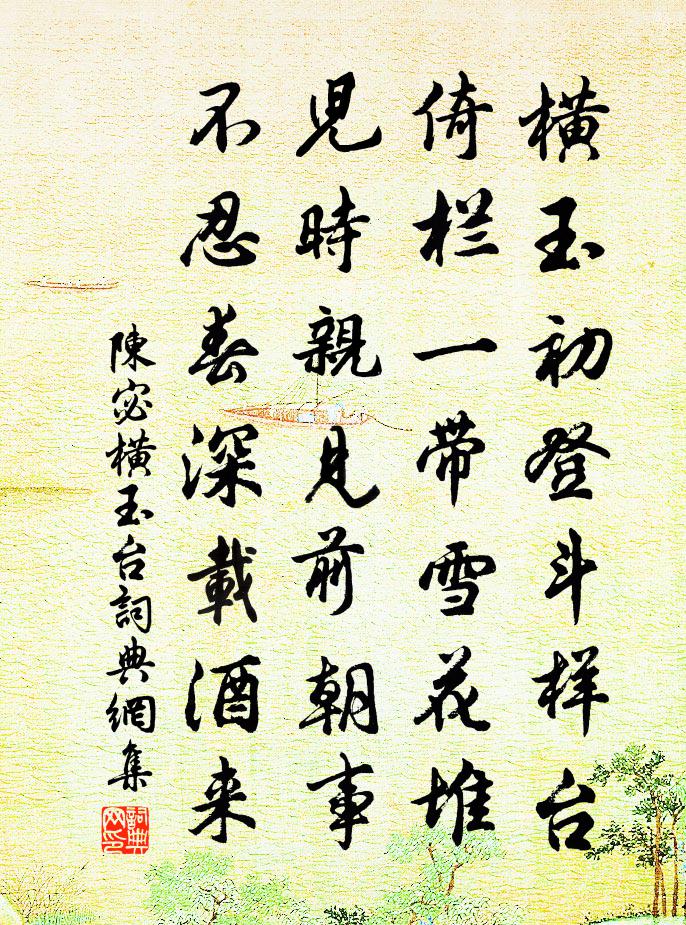 横玉初登斗样台
倚栏一带雪花堆
児時親見前朝事
不忍春深載酒来
陳宓横玉台詞典網集
詞典网印